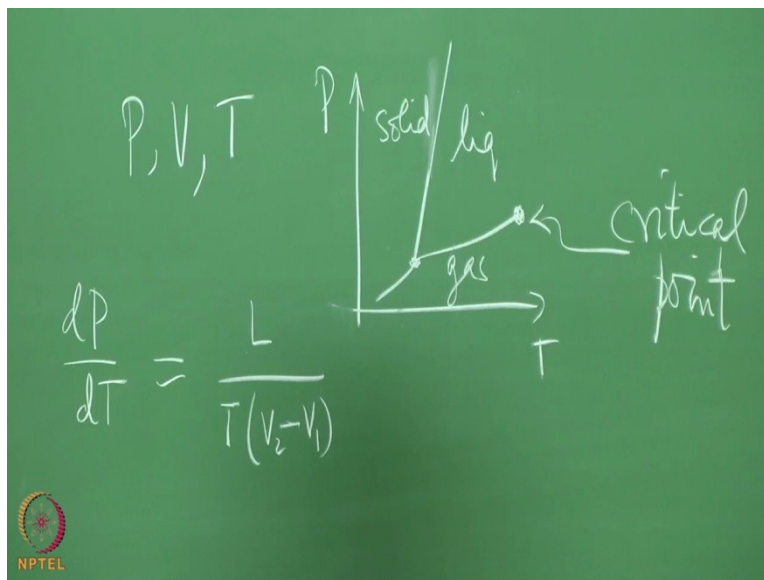 P, V, T
P
solid
liq
gas
T
critical
point
dP/dT = L/T(V₂-V₁)
NPTEL